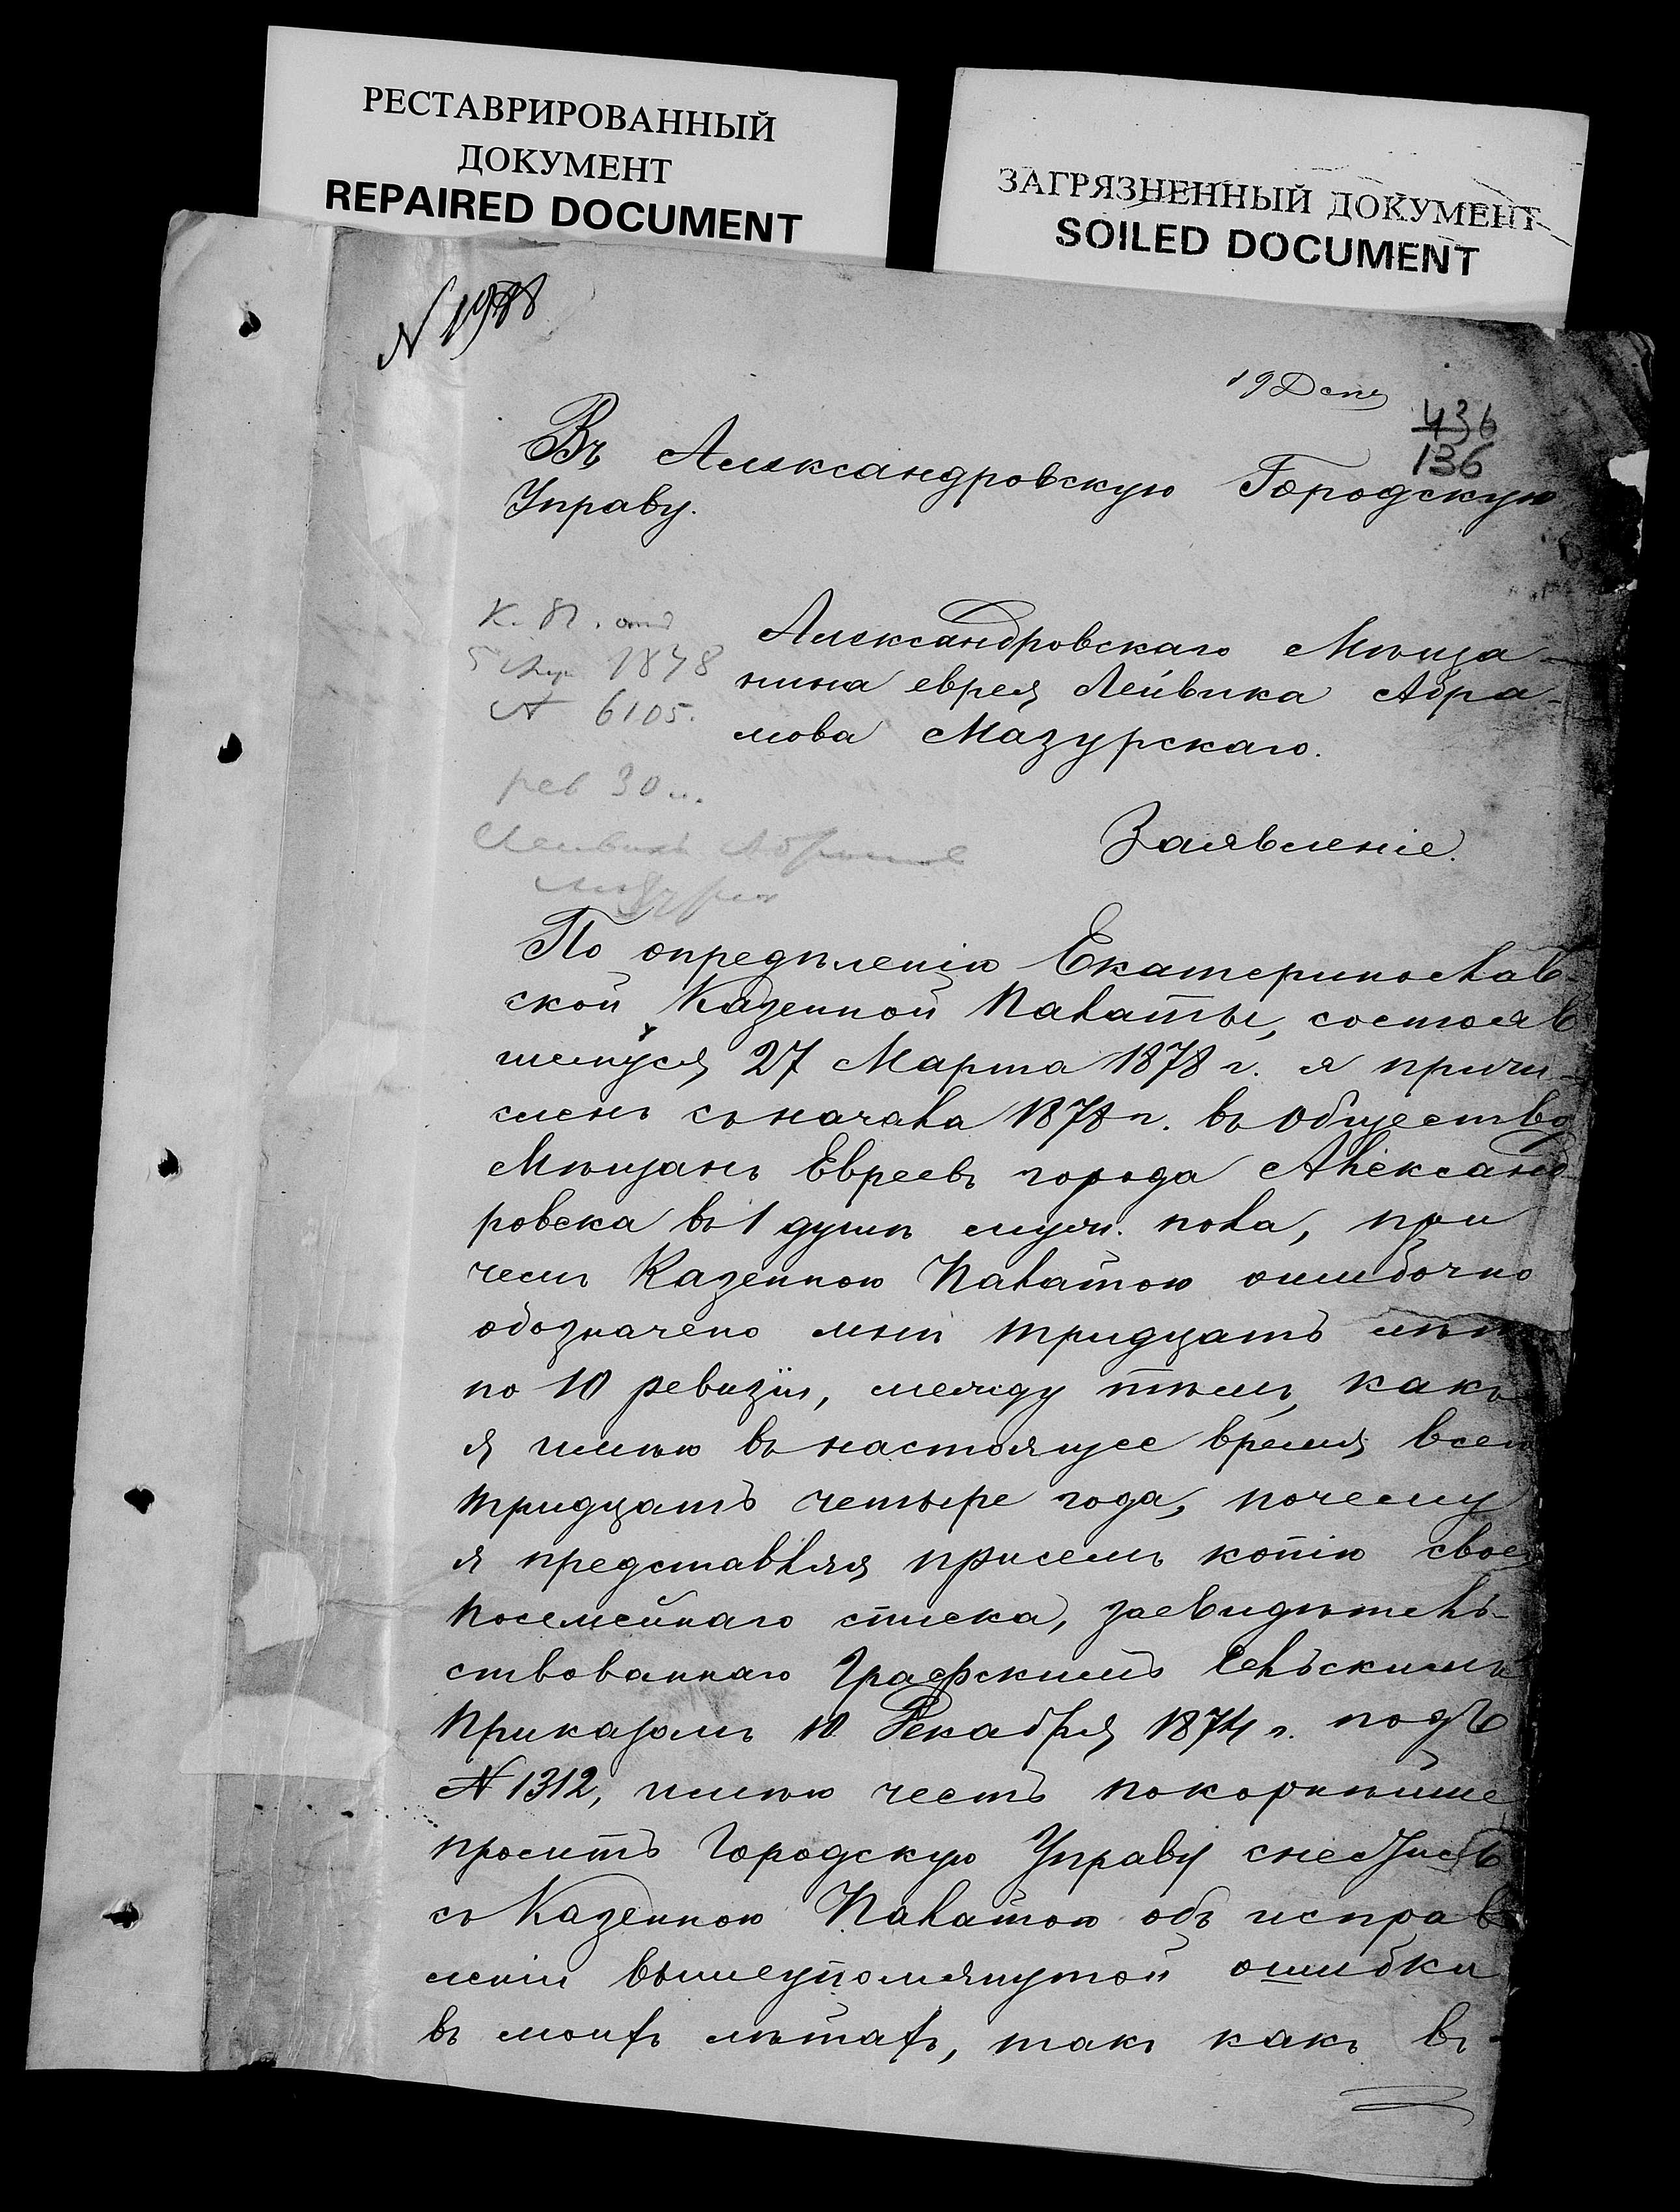 РЕСТАВРИРОВАННЫЙ
ДОКУМЕНТ
REPAIRED DOCUMENT
ЗАГРЯЗНЕННЫЙ ДОКУМЕНТ
SOILED DOCUMENT
N
19
436
136
Въ Александровскую Городскую
Управу.
К. П. отъ
5 1878
N 6105.
рев 30 л.
Лейвикъ
Мазурск
Александровскаго Мѣща-
нина еврея Лейвика Абра-
мова Мазурскаго.
Заявленіе.
По опредѣленію Екатеринослав-
ской Казенной Палаты, состояв
шемуся 27 Марта 1878 г. я причи-
сленъ съ начала 1878 г. въ Общество
Мѣщанъ Евреевъ города Александ-
ровска въ 1 душѣ муж. пола, при
чемъ Казенною Палатою ошибочно
обозначено мнѣ тридцать лѣтъ
по 10 ревизіи, между тѣмъ, какъ
я имѣю въ настоящее время всего
тридцать четыре года, почему
я представляя при семъ копію своего
посемейнаго списка, засвидѣтель-
ствованнаго Графскимъ Сельскимъ
Приказомъ 10 Декабря 1874 г. подъ
N 1312, имѣю честь покорнѣйше
просить Городскую Управу снестись
съ Казенною Палатою объ исправ
леніи вышеупомянутой ошибки
въ моихъ лѣтахъ, такъ какъ въ